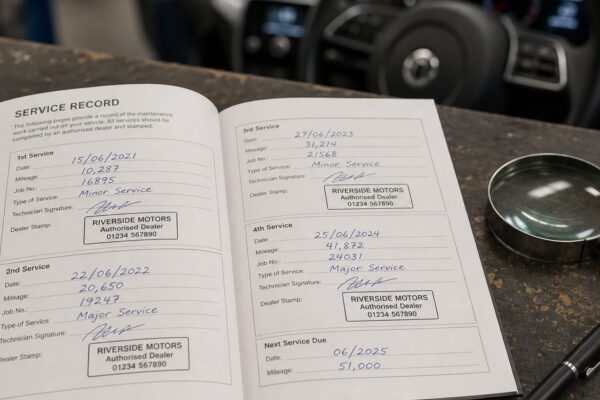 SERVICE RECORD
The following pages provide a record of the maintenance
work carried out on your vehicle. All services should be
completed by an authorised dealer and stamped.
1st Service
Date: 15/06/2021
Mileage: 10,287
Job No.: 16895
Type of Service: Minor Service
Technician Signature:
Dealer Stamp:
RIVERSIDE MOTORS
Authorised Dealer
01234 567890
2nd Service
Date: 22/06/2022
Mileage: 20,650
Job No.: 19247
Type of Service: Major Service
Technician Signature:
Dealer Stamp:
RIVERSIDE MOTORS
Authorised Dealer
01234 567890
3rd Service
Date: 27/06/2023
Mileage: 31,214
Job No.: 21568
Type of Service: Minor Service
Technician Signature:
Dealer Stamp:
RIVERSIDE MOTORS
Authorised Dealer
01234 567890
4th Service
Date: 25/06/2024
Mileage: 41,872
Job No.: 24031
Type of Service: Major Service
Technician Signature:
Dealer Stamp:
RIVERSIDE MOTORS
Authorised Dealer
01234 567890
Next Service Due
Date: 06/2025
Mileage: 51,000